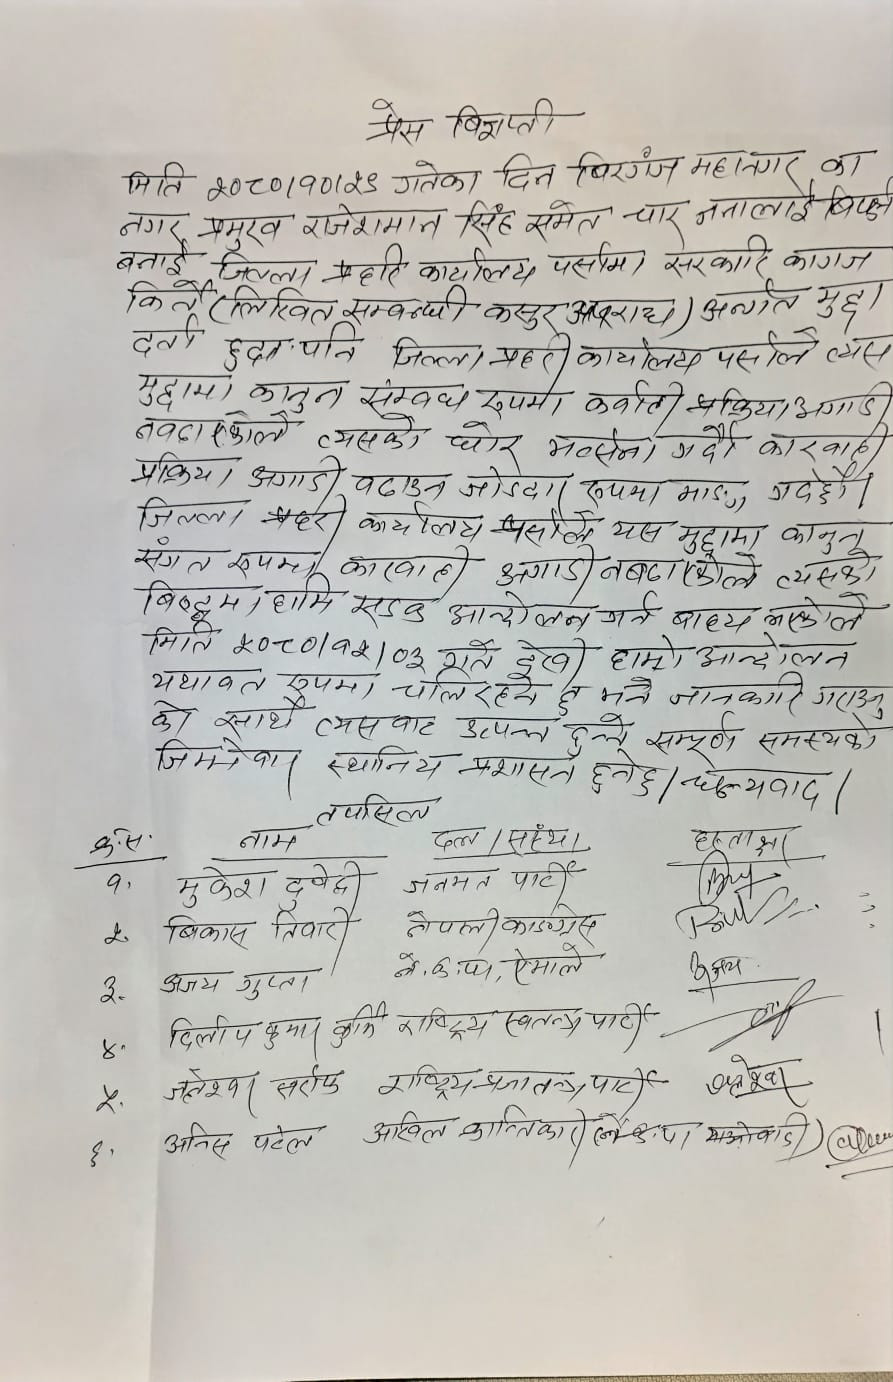 प्रेस बिज्ञप्ती
मिति २०८०।१०।२९ गतेका दिन बिरगंज महानगर का
नगर प्रमुख राजेशमान सिंह समेत चार जनालाई बिपक्षी
बनाई जिल्ला प्रहरि कार्यालय पर्सामा सरकारि कागज
किर्ते (लिखित सम्वन्धी कसुर अपराध) अर्न्तगत मुद्दा
दर्ता हुदा पनि जिल्ला प्रहरी कार्यालय पर्साले त्यस
मुद्दामा कानुन संम्वध रूपमा कर्वाही प्रक्रिया अगाडी
नवढाएकोले त्यसको घोर भर्त्सना गर्दै कारवाही
प्रक्रिया अगाडी वढाउन जोडदार रूपमा माङ्ग गर्दछौ।
जिल्ला प्रहरी कार्यालय पर्साले यस मुद्दामा कानुन
संगत रूपमा कारवाही अगाडी नबढाएकोले त्यसको
बिरूद्धमा हामि सडक आन्दोलन गर्न बाध्य भएकोले
मिति २०८०।१२।०३ गते देखी हाम्रो आन्दोलन
यथावत रूपमा चलिरहने छ भन्ने जानकारि गराउनु
को साथै त्यसवाट उत्पन्न हुन्ने सम्पूर्ण समस्यको
जिम्मेवार स्थानिय प्रशासन हुनेछ। धन्यवाद।
तपसिल
क्र.स. नाम दल।संस्था हस्ताक्षर
१. मुकेश दुवेदी जनमत पार्टी
२. बिकास तिवारी नेपाली काङग्रेस
३. अजय गुप्ता ने.क.पा. ऐमाले अजय
४. दिलीप कुमार कुर्मि राष्ट्रिय स्वतन्त्र पार्टी
५. जलेश्वर सर्राफ राष्ट्रिय प्रजातन्त्र पार्टी जलेश्वर
६. अनिस पटेल अखिल क्रान्तिकारी (ने.क.पा माओवादी)